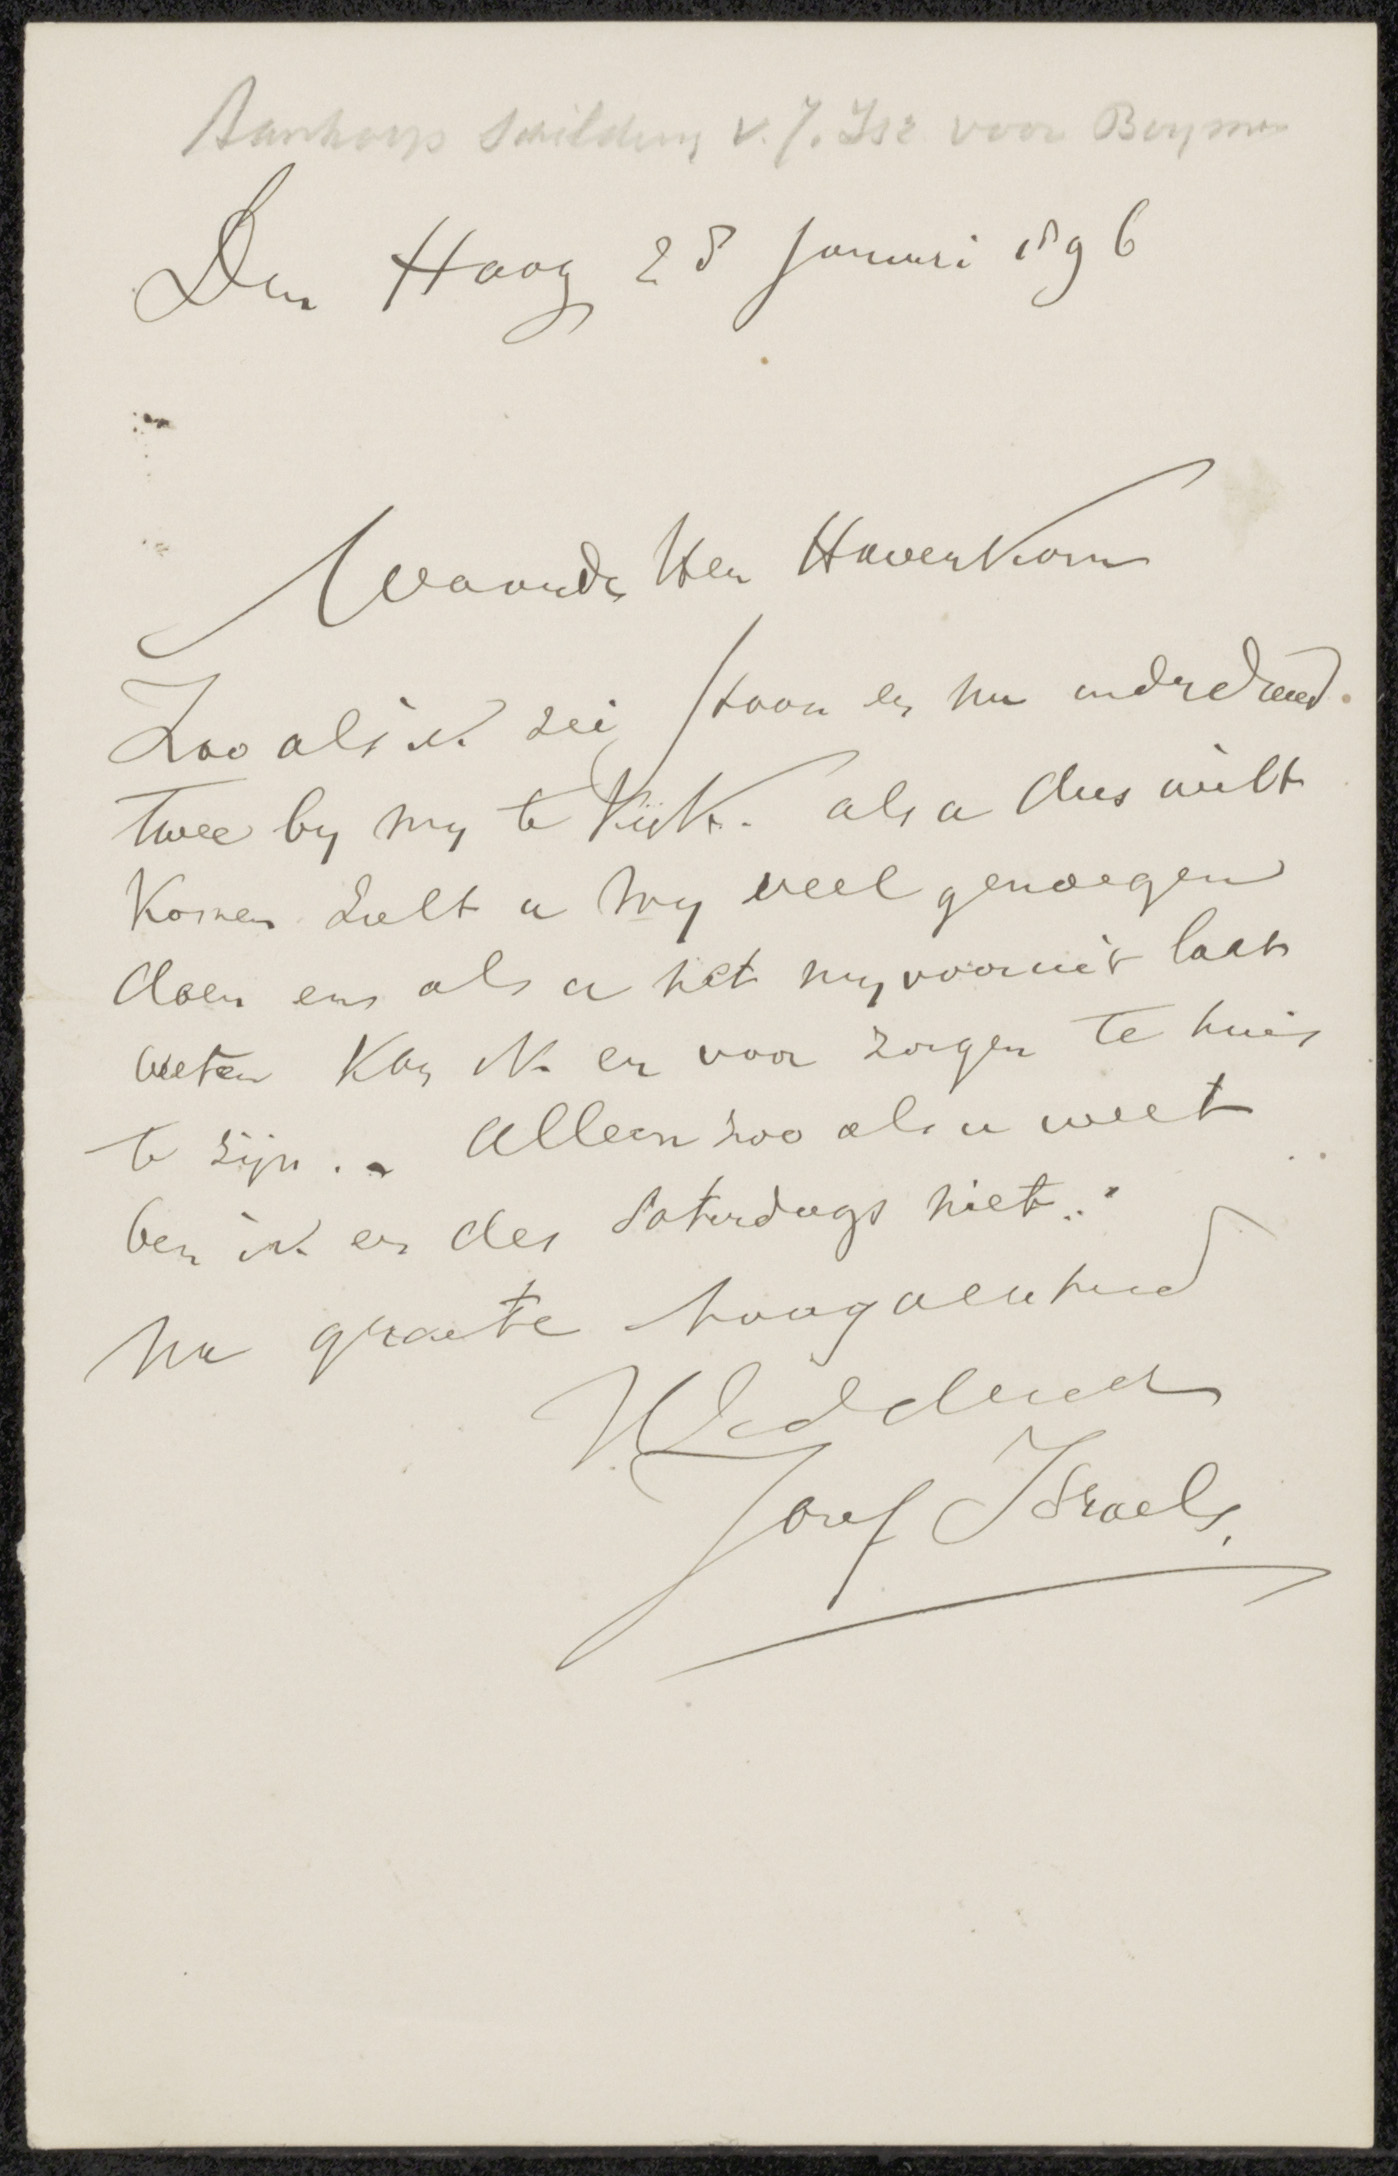 Aankoop Schilderij v. J. Isr. voor Boymans
Den Haag 28 Januari 1896
Waarde Heer Haverkorn
Zoo als ik zei staan er nu
twee by my te kijk. als u dus wilt
komen zult u my veel genoegen
doen en als u het my vooruit laat
weten kan ik er voor zorgen te huis
te zijn. Alleen zoo als u weet
ben ik er des Saterdags niet.
Na groete hoogachtend
UEd dienaar
Jozef Israels.